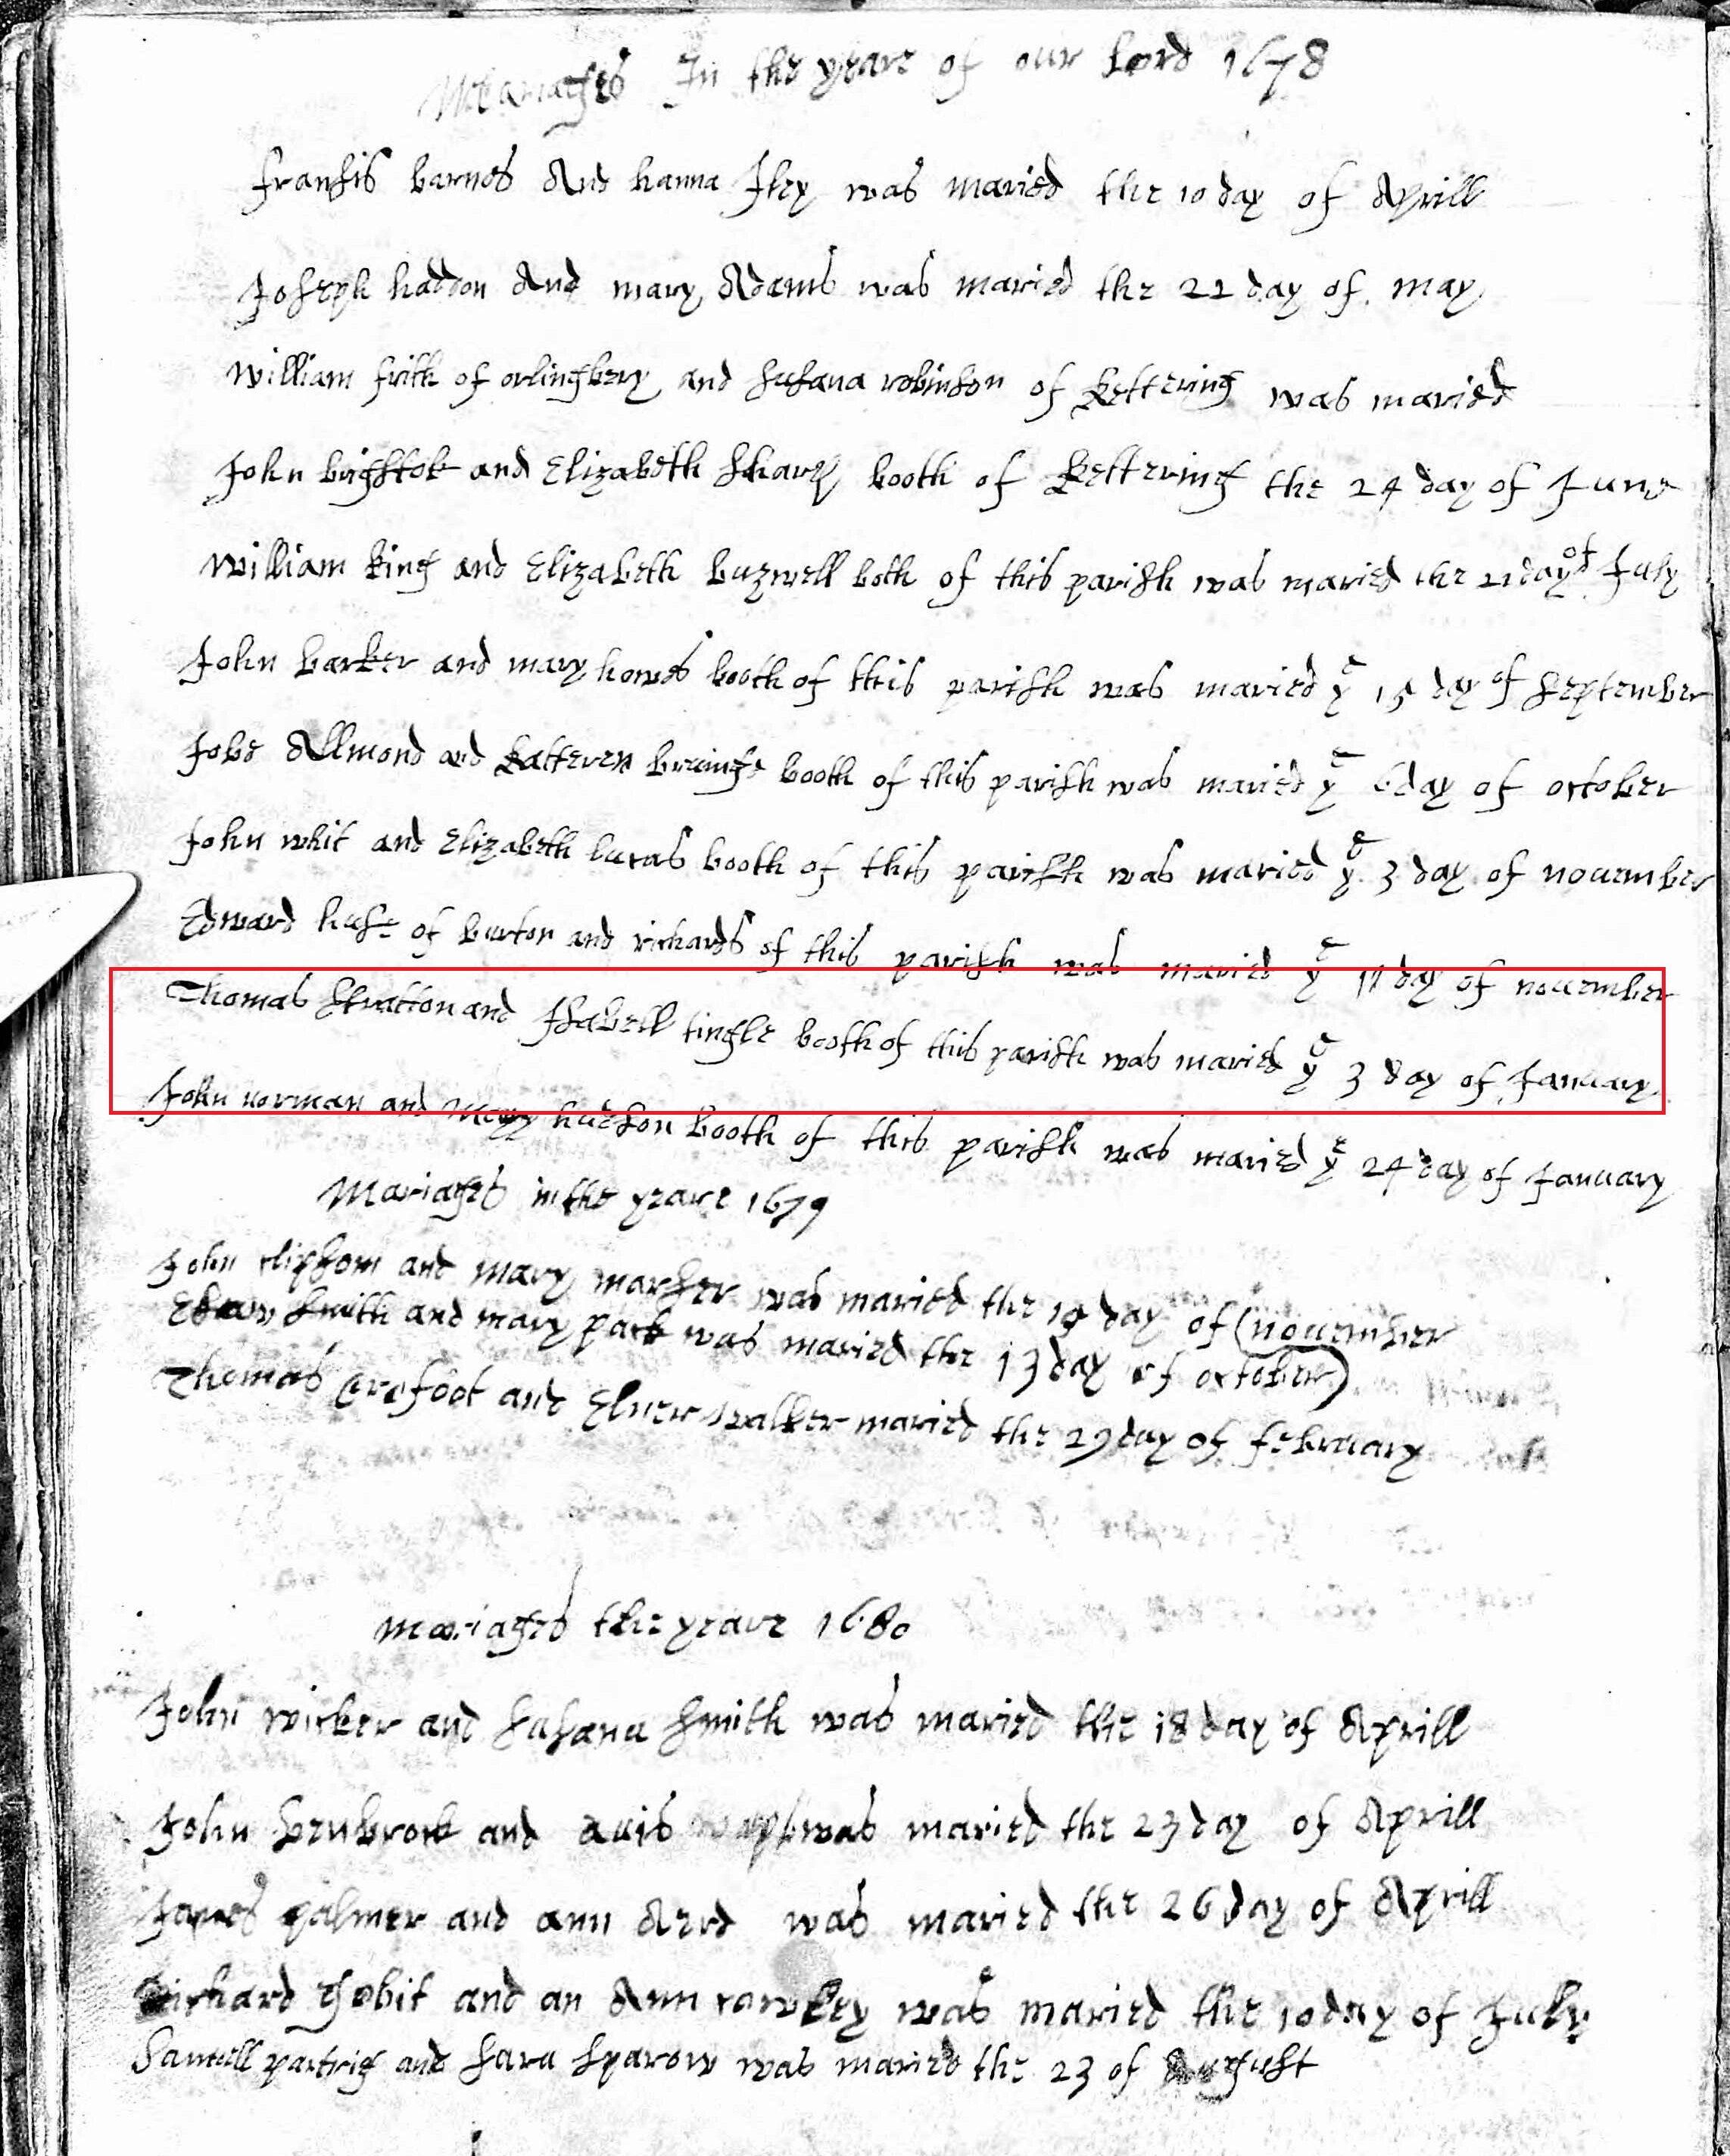 Mariages In the yeare of our Lord 1678
fransis barnes And hanna Iley was maried the 10 day of Aprill
Joseph haddon And mary Adams was maried the 22 day of may
William frith of orlingbery and susana robinson of Kettering was maried
John bigstok and Elizabeth Sharp booth of Kettering the 24 day of June
William King and Elizabeth buzwell both of this parish was maried the 21 day of July
John barker and mary howes booth of this parish was maried ye 15 day of September
Jobe Allmond and Katteren booth of this parish was maried ye 6 day of october
John whit and Elizabeth lucas booth of this parish was maried ye 3 day of nouember
Edward huse of burton and richards of this parish was maried ye 11 day of nouember
Thomas Stratton and Isabell tingle booth of this parish was maried ye 3 day of January
John norman and Mary hueson booth of this parish was maried ye 24 day of January
Mariages in the yeare 1679
John clipsom and mary marser was maried the day of (nouember
Smith and mary pack was maried the 13 day of october)
Thomas Corefoot and Elner walker maried the 29 day of february
mariages the yeare 1680
John wicker and Susana Smith was maried the 18 day of Aprill
John henbrock and auis was maried the 23 day of Aprill
James palmer and ann Aerd was maried the 26 day of Aprill
Richard gobit and an Ann rowley was maried the 10 day of July
Samuell partrig and Sara Sparow was maried the 23 of August